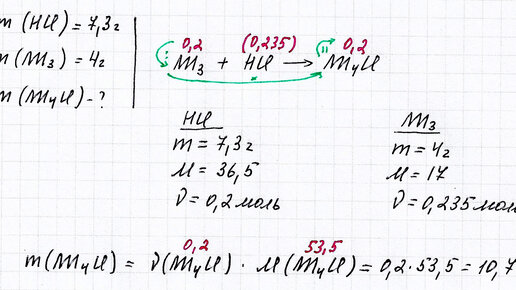 m (HCl) = 7,3 г
m (NH3) = 4 г
m (NH4Cl) - ?
0,2 (0,235) 0,2
NH3 + HCl → NH4Cl
HCl
m = 7,3 г
M = 36,5
ν = 0,2 моль
NH3
m = 4 г
M = 17
ν = 0,235 моль
0,2 53,5
m (NH4Cl) = ν (NH4Cl) · M (NH4Cl) = 0,2 · 53,5 = 10,7